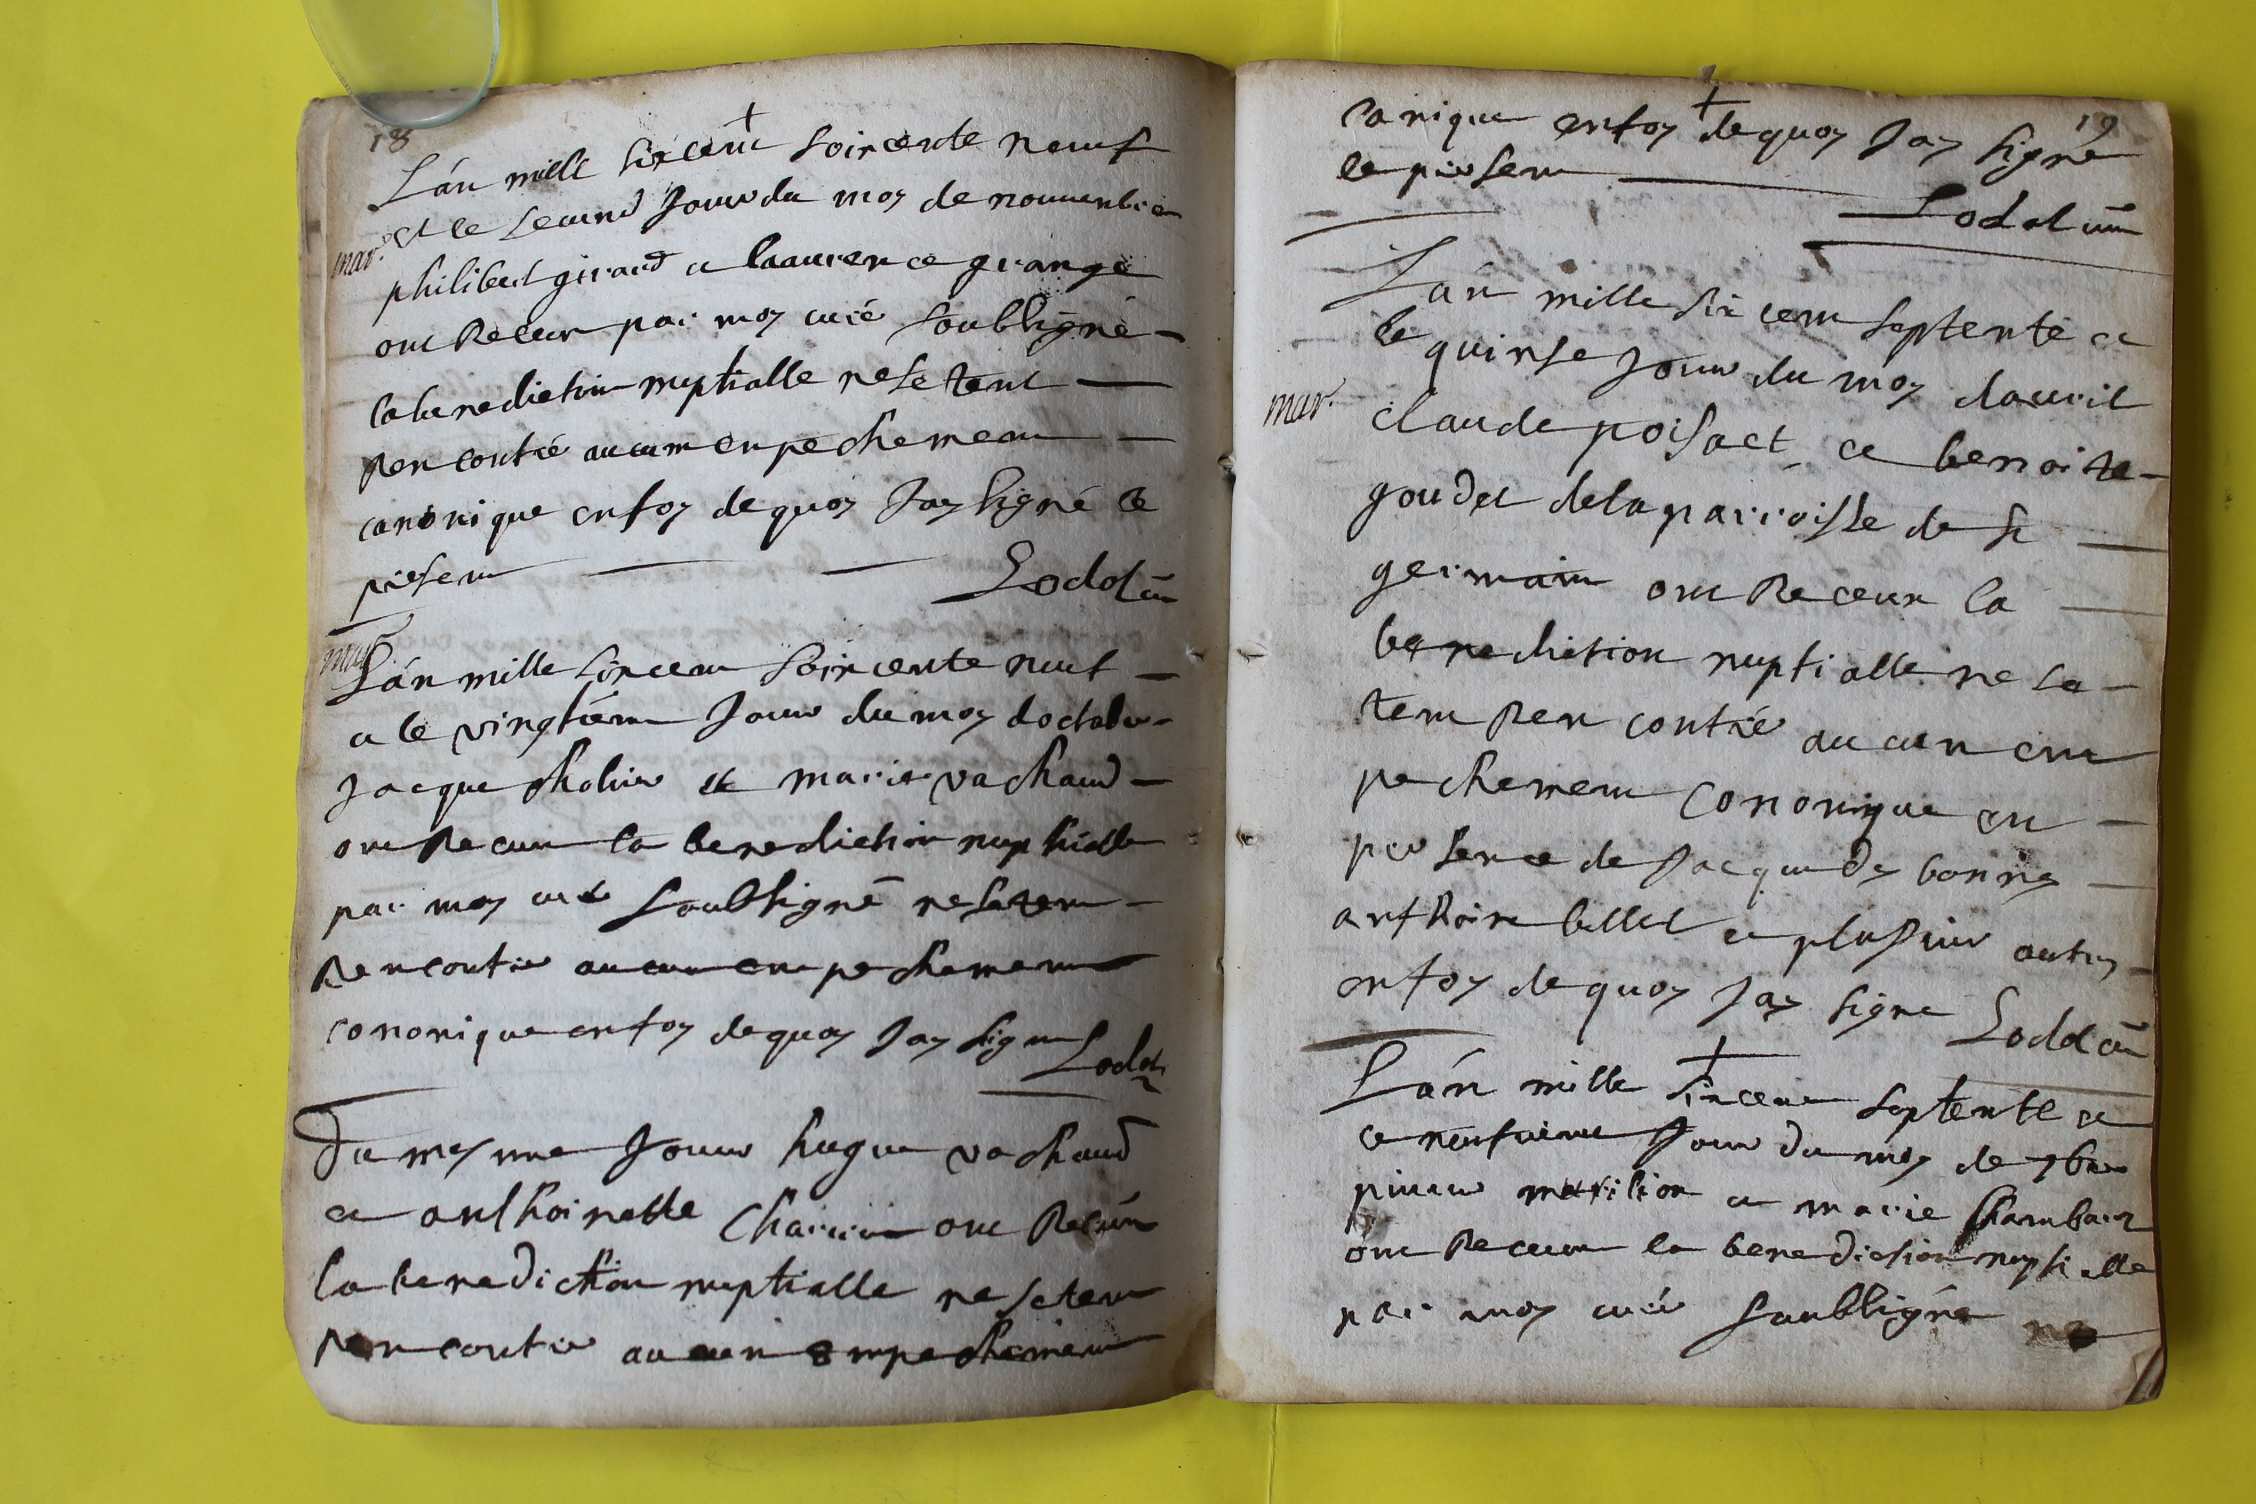 18
+
Lán mille sixcent soixcente neuf
et le second Jour du moy de nouuenbre
mar.
philibert girard et laaurence grange
ont Receu par moy curé soubsigné
la benediction nuptialle ne sestent
Rencontré aucum enpechemean
canonique enfoy de quoy Jay signé le
present
Lodot
mar
Lán mille sixcent soixcente neuf
et le vingtiém Jour du moy doctobre
Jacque et marie vachaud
ont Receu la benediction nuptialle
par moy curé soubsigné ne sestent
Rencontré aucun enpechement
cononique enfoy de quoy Jay signe
Lodot
Du mesme Jour hugue vachaud
et anthoinette ont Receu
la benediction nuptialle ne sestent
Rencontré aucun empechement
19
+
canique enfoy de quoy Jay signé
le present
Lodot
Lán mille six cent septente et
le quinse Jour du moy dauril
mar.
claude poisact et benoite
goudet de la parroisse de st
germain ont Receu la
benediction nuptialle ne ses
tent Ren contré aucun em
pechement cononique en
presence de Jacque
anthoine et plusieur autres
enfoy de quoy Jay signe
Lodot
+
Lán mille sixcent septente et
ce neufuieme Jour du moy de 7bre
pierre et marie Chambard
ont Receu la benediction nuptialle
par moy curé soubsigné ne